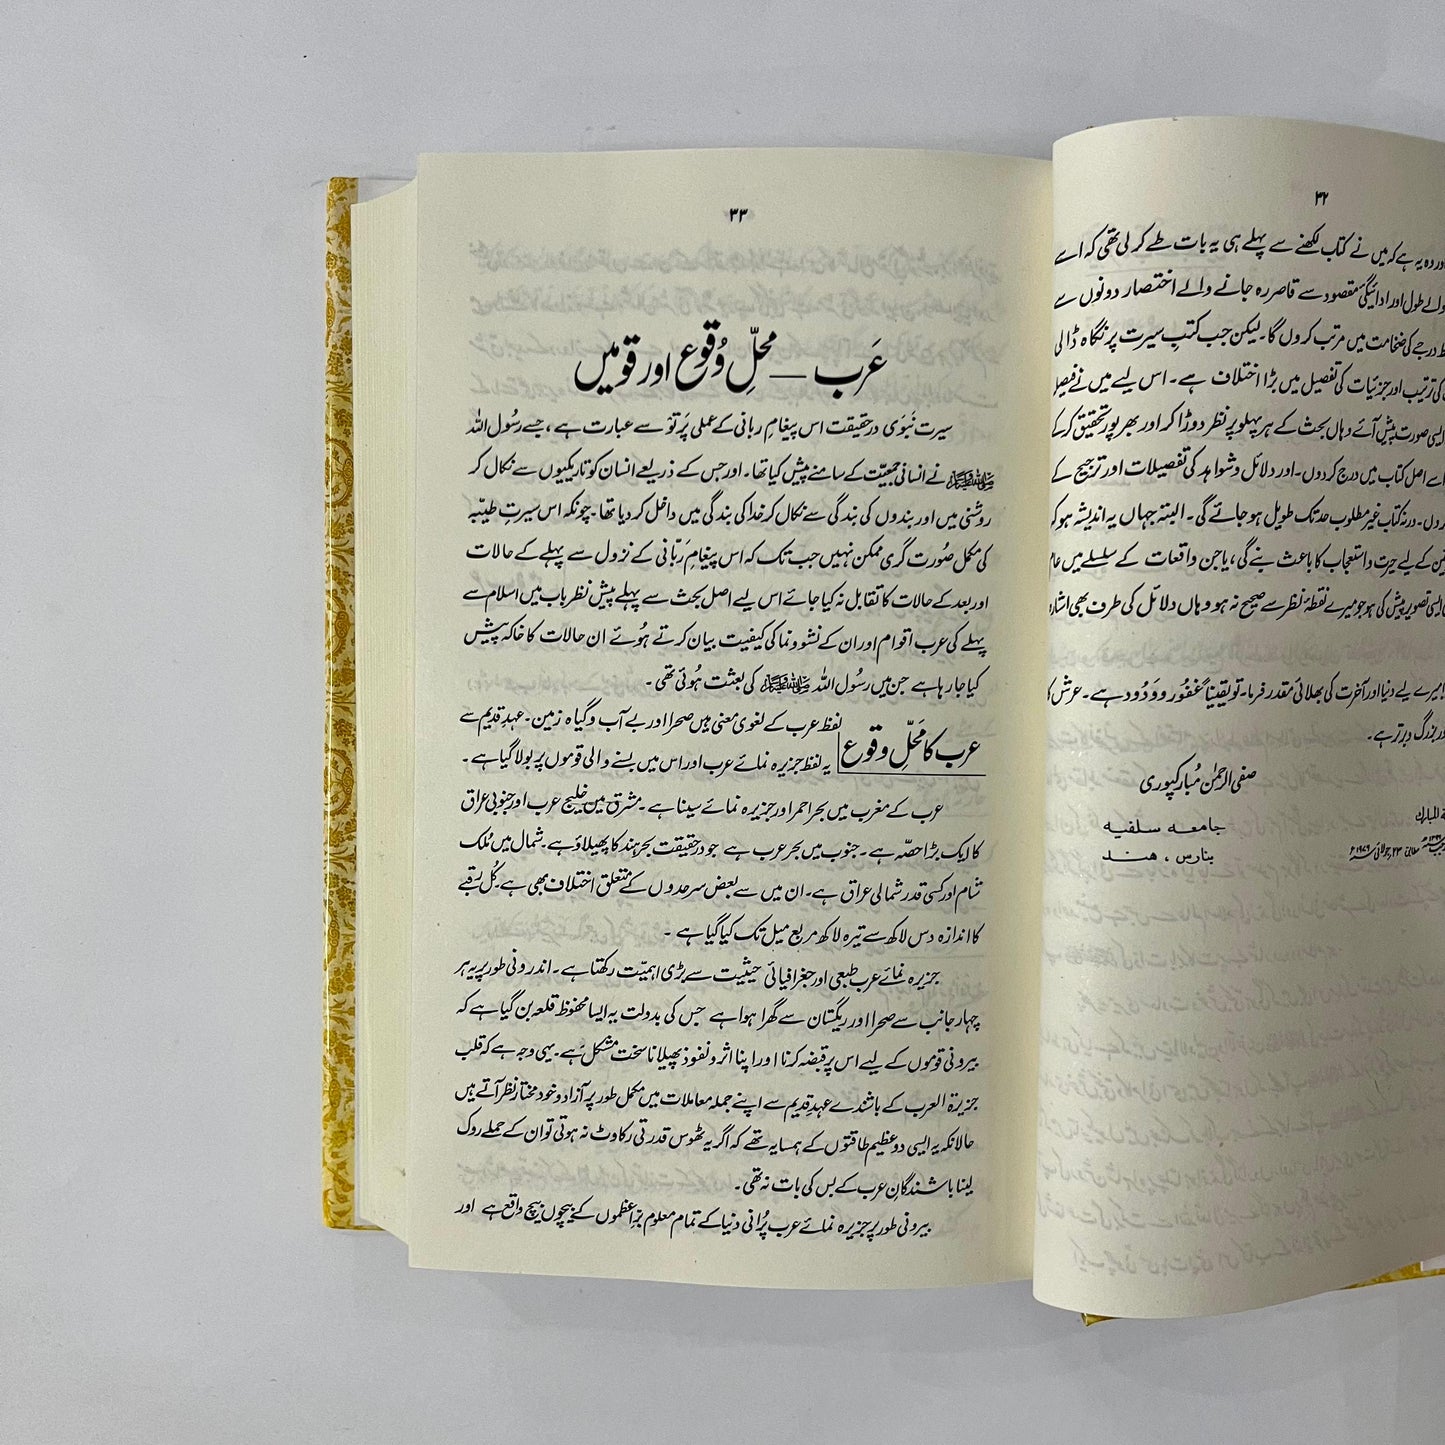 ۳۲
کہ میں نے کتاب لکھنے سے پہلے ہی یہ بات طے کر لی تھی کہ اسے
طول اور ادائیگیٔ مقصود سے قاصر رہ جانے والے اختصار دونوں سے
درجے کی ضخامت میں مرتب کروں گا۔ لیکن جب کتبِ سیرت پر نگاہ ڈالی
کی ترتیب اور جزئیات کی تفصیل میں بڑا اختلاف ہے۔ اس لیے میں نے
صورت پیش آئے وہاں بحث کے ہر پہلو پر نظر دوڑا کر اور بھرپور تحقیق کر کے
اسے اصل کتاب میں درج کر دوں۔ اور دلائل و شواہد کی تفصیلات اور ترجیح کے
دوں۔ ورنہ کتاب غیر مطلوب حد تک طویل ہو جائے گی۔ البتہ جہاں یہ اندیشہ ہو کہ
کے لیے حیرت و استعجاب کا باعث بنے گی، یا جن واقعات کے سلسلے میں
ایسی تصویر پیش کی ہو جو میرے نقطۂ نظر سے صحیح نہ ہو وہاں دلائل کی طرف بھی
میرے لیے دنیا اور آخرت کی بھلائی مقدر فرما۔ تو یقیناً غفور و ودود ہے۔ عرش کا
بزرگ و برتر ہے۔
صفی الرحمٰن مُبارکپوری
جامعہ سلفیہ
بنارس ، ھند
المبارک
۳۳
عَرب ــ محلِّ وُقوع اور قومیں
سیرت نَبَوی درحقیقت اس پیغامِ ربانی کے عملی پَرتَو سے عبارت ہے ، جسے رسُول اللہ
ﷺ نے انسانی جمعیّت کے سامنے پیش کیا تھا۔ اور جس کے ذریعے انسان کو تاریکیوں سے نکال کر
روشنی میں اور بندوں کی بندگی سے نکال کر خدا کی بندگی میں داخل کر دیا تھا۔ چونکہ اس سیرتِ طیبّہ
کی مکمل صُورت گری ممکن نہیں جب تک کہ اس پیغامِ ربّانی کے نزول سے پہلے کے حالات
اور بعد کے حالات کا تقابل نہ کیا جائے اس لیے اصل بحث سے پہلے پیش نظر باب میں اسلام سے
پہلے کی عرب اقوام اور ان کے نشوونما کی کیفیت بیان کرتے ہُوئے ان حالات کا خاکہ پیش
کیا جا رہا ہے جن میں رسُول اللہ ﷺ کی بعثت ہُوئی تھی ۔
عرب کا مَحلِّ وقوع
لفظ عرب کے لغوی معنی ہیں صحرا اور بے آب و گیاہ زمین۔ عہدِ قدیم سے
یہ لفظ جزیرہ نمائے عرب اور اس میں بسنے والی قوموں پر بولا گیا ہے ۔
عرب کے مغرب میں بحر احمر اور جزیرہ نمائے سینا ہے ۔ مشرق میں خلیج عرب اور جنوبی عراق
کا ایک بڑا حصّہ ہے ۔ جنوب میں بحر عرب ہے جو درحقیقت بحر ہند کا پھیلاؤ ہے۔ شمال میں مُلک
شام اور کسی قدر شمالی عراق ہے۔ ان میں سے بعض سرحدوں کے متعلق اختلاف بھی ہے۔ کُل رقبے
کا اندازہ دس لاکھ سے تیرہ لاکھ مربع میل تک کیا گیا ہے ۔
جزیرہ نمائے عرب طبعی اور جغرافیائی حیثیت سے بڑی اہمیّت رکھتا ہے۔ اندرونی طور پر یہ ہر
چہار جانب سے صحرا اور ریگستان سے گھرا ہوا ہے جس کی بدولت یہ ایسا محفوظ قلعہ بن گیا ہے کہ
بیرونی قوموں کے لیے اس پر قبضہ کرنا اور اپنا اثر و نفوذ پھیلانا سخت مشکل ہے۔ یہی وجہ ہے کہ قلب
جزیرۃ العرب کے باشندے عہدِ قدیم سے اپنے جملہ معاملات میں مکمل طور پر آزاد و خود مختار نظر آتے ہیں
حالانکہ یہ ایسی دو عظیم طاقتوں کے ہمسایہ تھے کہ اگر یہ ٹھوس قدرتی رکاوٹ نہ ہوتی تو ان کے حملے روک
لینا باشندگانِ عرب کے بس کی بات نہ تھی ۔
بیرونی طور پر جزیرہ نمائے عرب پُرانی دنیا کے تمام معلوم برّاعظموں کے بیچوں بیچ واقع ہے اور